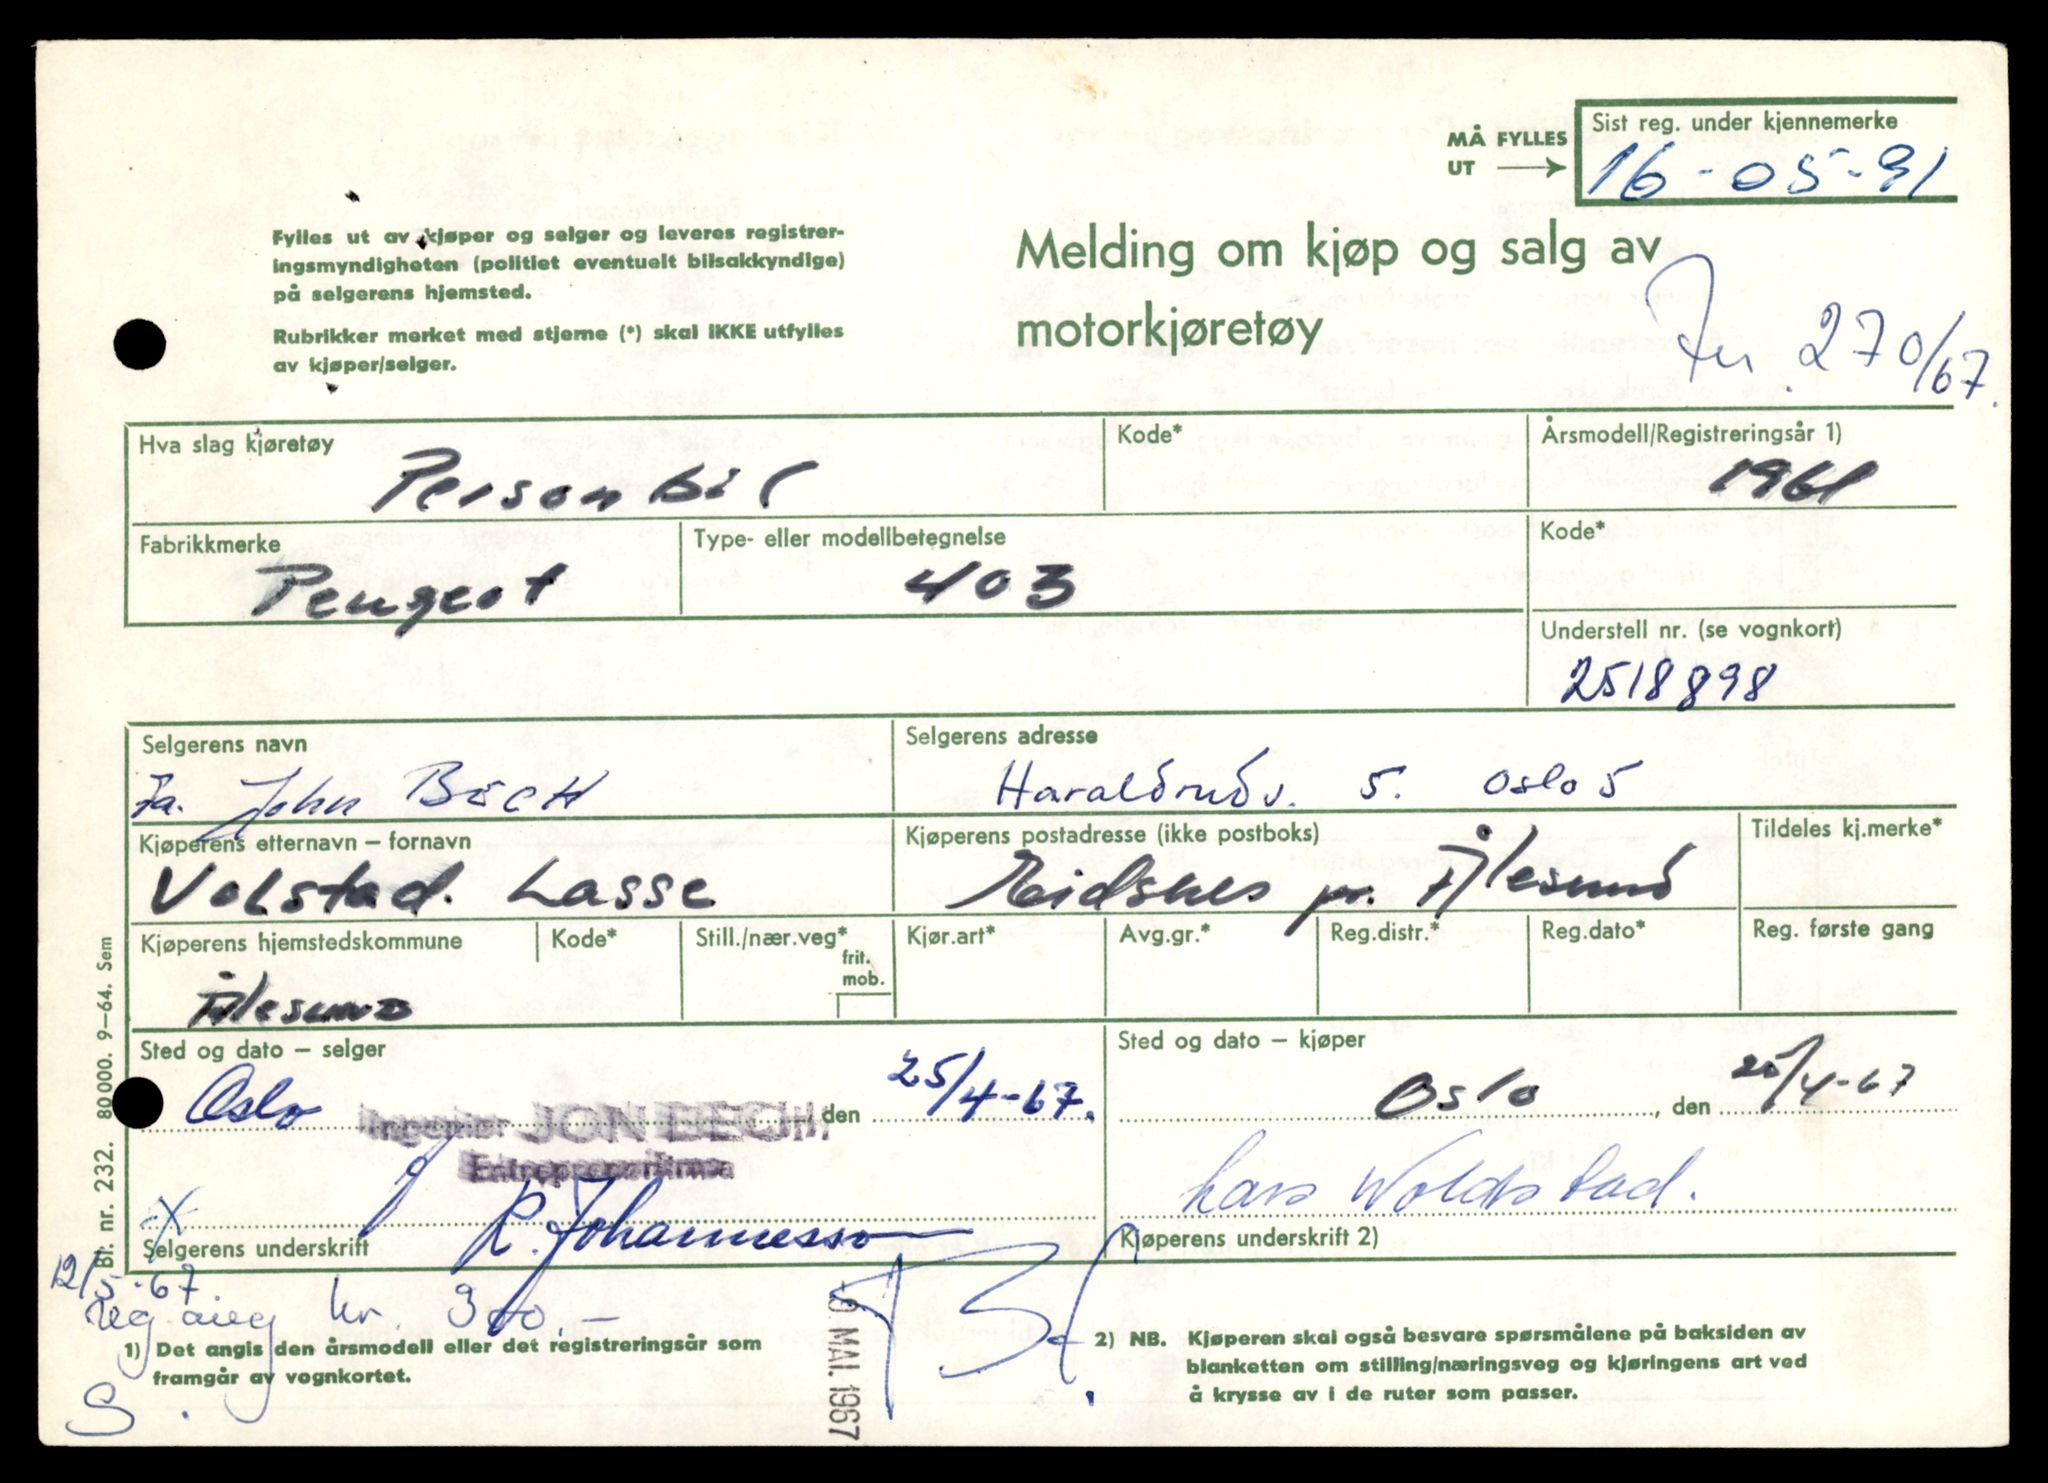 MÅ FYLLES UT
Sist reg. under kjennemerke
16-05-91
Fylles ut av kjøper og selger og leveres registrer-
ingsmyndigheten (politiet eventuelt bilsakkyndige)
på selgerens hjemsted.
Rubrikker merket med stjerne (*) skal IKKE utfylles
av kjøper/selger.
Melding om kjøp og salg av
motorkjøretøy
270/67.
Hva slag kjøretøy
Personbil
Kode*
Årsmodell/Registreringsår 1)
1961
Fabrikkmerke
Peugeot
Type- eller modellbetegnelse
403
Kode*
Understell nr. (se vognkort)
2518898
Selgerens navn
Fa. John Bech
Selgerens adresse
Haraldrudv. 5. Oslo 5
Kjøperens etternavn – fornavn
Volstad. Lasse
Kjøperens postadresse (ikke postboks)
Eidsnes pr. Ålesund
Tildeles kj.merke*
Kjøperens hjemstedskommune
Ålesund
Kode*
Still./nær.veg*
frit.
mob.
Kjør.art*
Avg.gr.*
Reg.distr.*
Reg.dato*
Reg. første gang
Sted og dato – selger
Oslo , den 25/4-67.
Ingeniør JON BECH
Entreprenørfirma
R. Johannesson
Selgerens underskrift
Sted og dato – kjøper
Oslo , den 25/4-67
Lars Woldstad.
Kjøperens underskrift 2)
Bl. nr. 232. 80 000. 9–64. Sem
12/5-67
reg avg kr. 300.–
S.
MAI. 1967
1) Det angis den årsmodell eller det registreringsår som
framgår av vognkortet.
2) NB. Kjøperen skal også besvare spørsmålene på baksiden av
blanketten om stilling/næringsveg og kjøringens art ved
å krysse av i de ruter som passer.